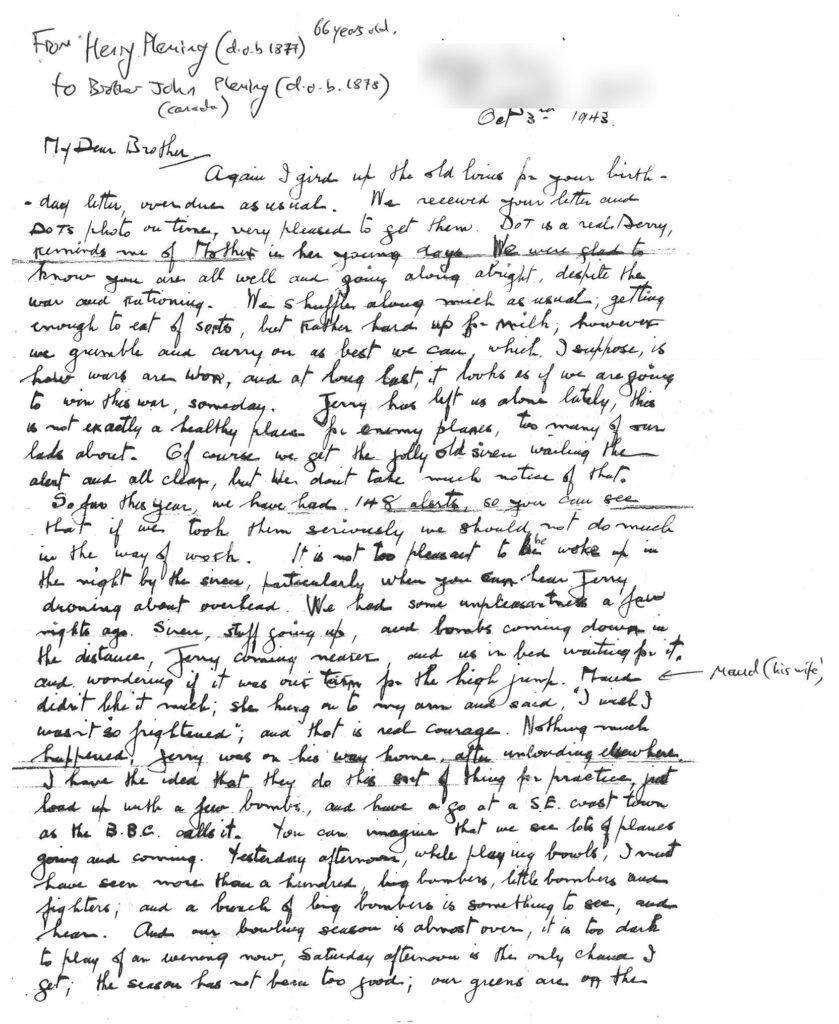 From Henry Plening (d.o.b 1877) 66 years old.
to Brother John Plening (d.o.b. 1875)
(Canada)
Oct 3rd 1943.
My Dear Brother
Again I gird up the old loins for your birth-
-day letter, overdue as usual. We received your letter and
Dots photo on time, very pleased to get them. Dot is a real Derry,
reminds me of Mother in her young days. We were glad to
know you are all well and going along alright, despite the
war and rationing. We shuffle along much as usual; getting
enough to eat of sorts, but rather hard up for milk; however
we grumble and carry on as best we can, which, I suppose, is
how wars are won, and at long last, it looks as if we are going
to win this war, someday. Jerry has left us alone lately, this
is not exactly a healthy place for enemy planes, too many of our
lads about. Of course we get the jolly old siren wailing the
alert and all clear, but we don't take much notice of that.
So far this year, we have had 148 alerts, so you can see
that if we took them seriously we should not do much
in the way of work. It is not too pleasant to be woke up in
the night by the siren, particularly when you can hear Jerry
droning about overhead. We had some unpleasantness a few
nights ago. Siren, stuff going up, and bombs coming down in
the distance, Jerry coming nearer, and us in bed waiting for it,
and wondering if it was our turn for the high jump. Maud
← Maud (his wife)
didn't like it much; she hung on to my arm and said, "I wish I
wasn't so frightened"; and that is real courage. Nothing much
happened, Jerry was on his way home, after unloading elsewhere.
I have the idea that they do this sort of thing for practice, just
load up with a few bombs, and have a go at a S.E. coast town
as the B.B.C. calls it. You can imagine that we see lots of planes
going and coming. Yesterday afternoon, while playing bowls, I must
have seen more than a hundred, big bombers, little bombers and
fighters; and a bunch of big bombers is something to see, and
hear. And our bowling season is almost over, it is too dark
to play of an evening now, Saturday afternoon is the only chance I
get; the season has not been too good; our greens are on the